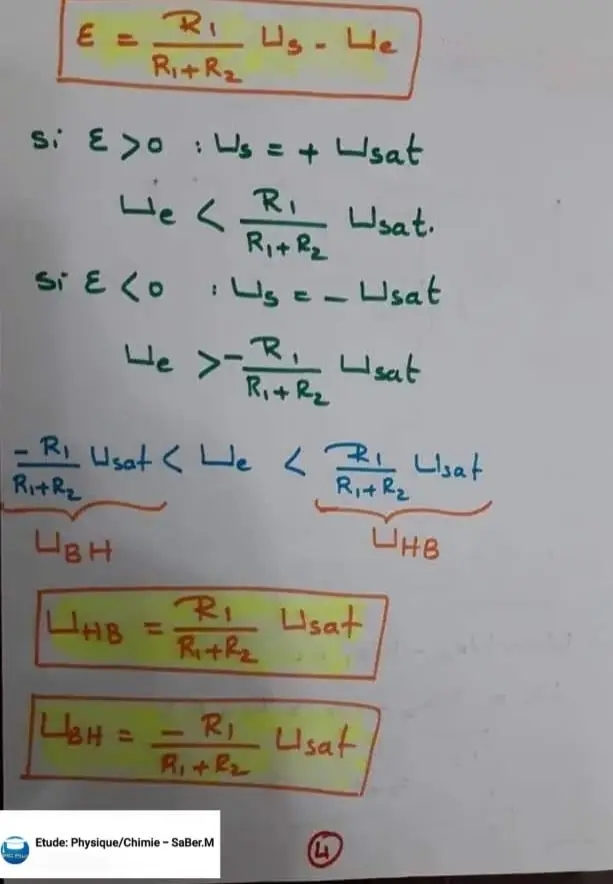 ε = R1/(R1+R2) Us - Ue
si ε > 0 : Us = + Usat
Ue < R1/(R1+R2) Usat.
si ε < 0 : Us = - Usat
Ue > - R1/(R1+R2) Usat
- R1/(R1+R2) Usat < Ue < R1/(R1+R2) Usat
UBH UHB
UHB = R1/(R1+R2) Usat
UBH = - R1/(R1+R2) Usat
Etude: Physique/Chimie – SaBer.M
4